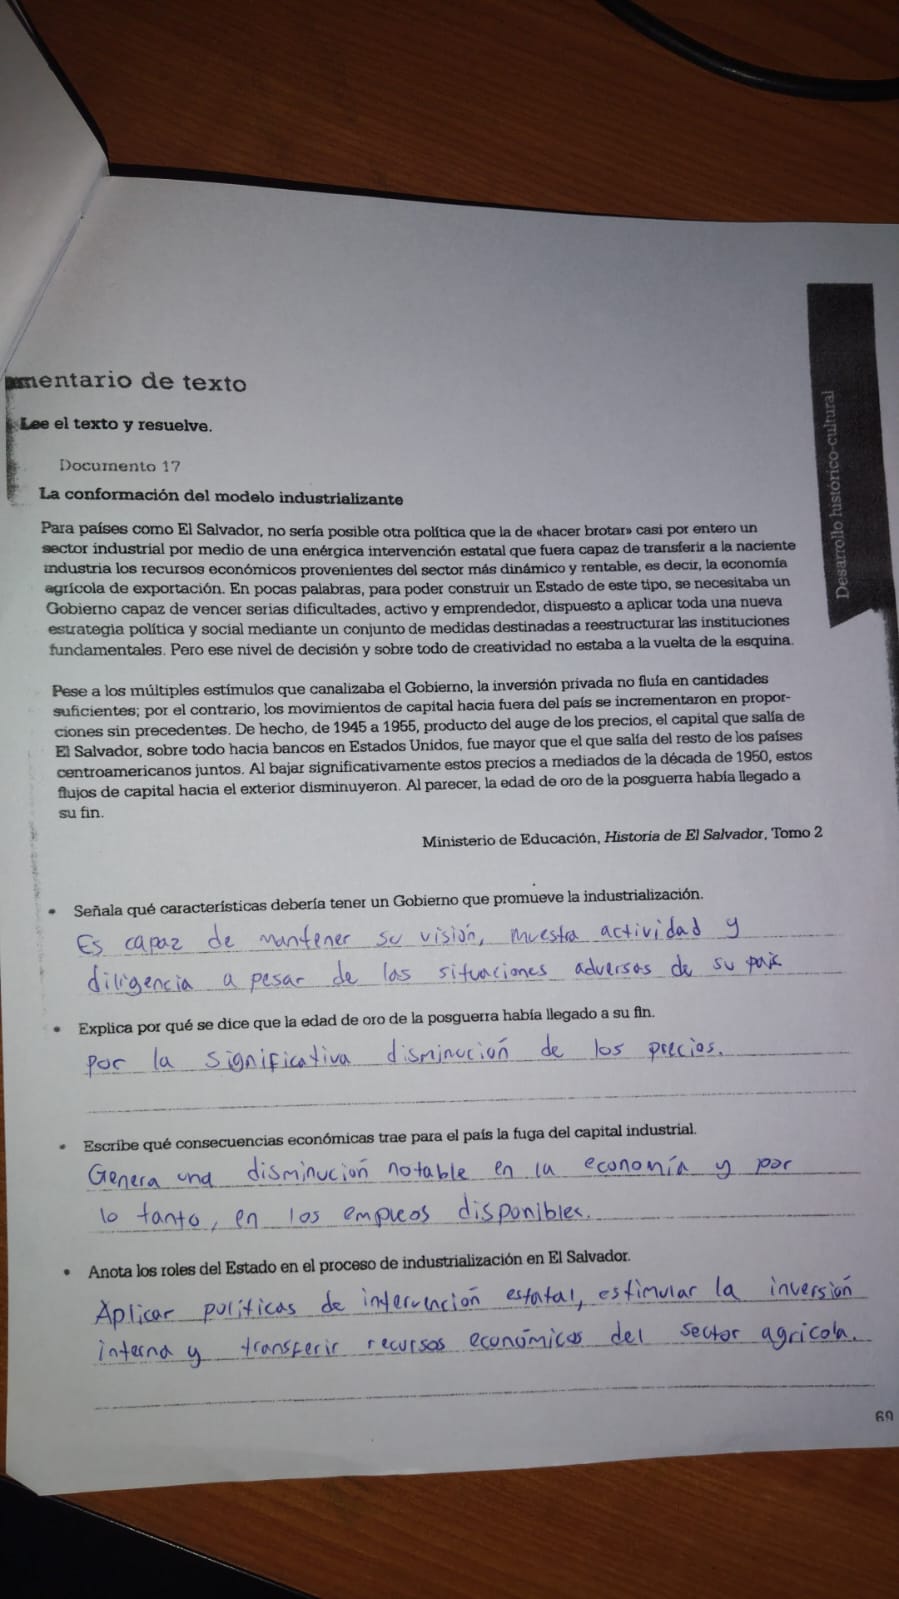 mentario de texto
Lee el texto y resuelve.
Documento 17
La conformación del modelo industrializante
Para países como El Salvador, no sería posible otra política que la de «hacer brotar» casi por entero un
sector industrial por medio de una enérgica intervención estatal que fuera capaz de transferir a la naciente
industria los recursos económicos provenientes del sector más dinámico y rentable, es decir, la economía
agrícola de exportación. En pocas palabras, para poder construir un Estado de este tipo, se necesitaba un
Gobierno capaz de vencer serias dificultades, activo y emprendedor, dispuesto a aplicar toda una nueva
estrategia política y social mediante un conjunto de medidas destinadas a reestructurar las instituciones
fundamentales. Pero ese nivel de decisión y sobre todo de creatividad no estaba a la vuelta de la esquina.
Pese a los múltiples estímulos que canalizaba el Gobierno, la inversión privada no fluía en cantidades
suficientes; por el contrario, los movimientos de capital hacia fuera del país se incrementaron en propor-
ciones sin precedentes. De hecho, de 1945 a 1955, producto del auge de los precios, el capital que salía de
El Salvador, sobre todo hacia bancos en Estados Unidos, fue mayor que el que salía del resto de los países
centroamericanos juntos. Al bajar significativamente estos precios a mediados de la década de 1950, estos
flujos de capital hacia el exterior disminuyeron. Al parecer, la edad de oro de la posguerra había llegado a
su fin.
Ministerio de Educación, Historia de El Salvador, Tomo 2
• Señala qué características debería tener un Gobierno que promueve la industrialización.
Es capaz de mantener su visión, muestra actividad y
diligencia a pesar de las situaciones adversas de su país
• Explica por qué se dice que la edad de oro de la posguerra había llegado a su fin.
por la significativa disminución de los precios.
• Escribe qué consecuencias económicas trae para el país la fuga del capital industrial.
Genera una disminución notable en la economía y por
lo tanto, en los empleos disponibles.
• Anota los roles del Estado en el proceso de industrialización en El Salvador.
Aplicar políticas de intervención estatal, estimular la inversión
interna y transferir recursos económicos del sector agrícola.
Desarrollo histórico-cultural
69